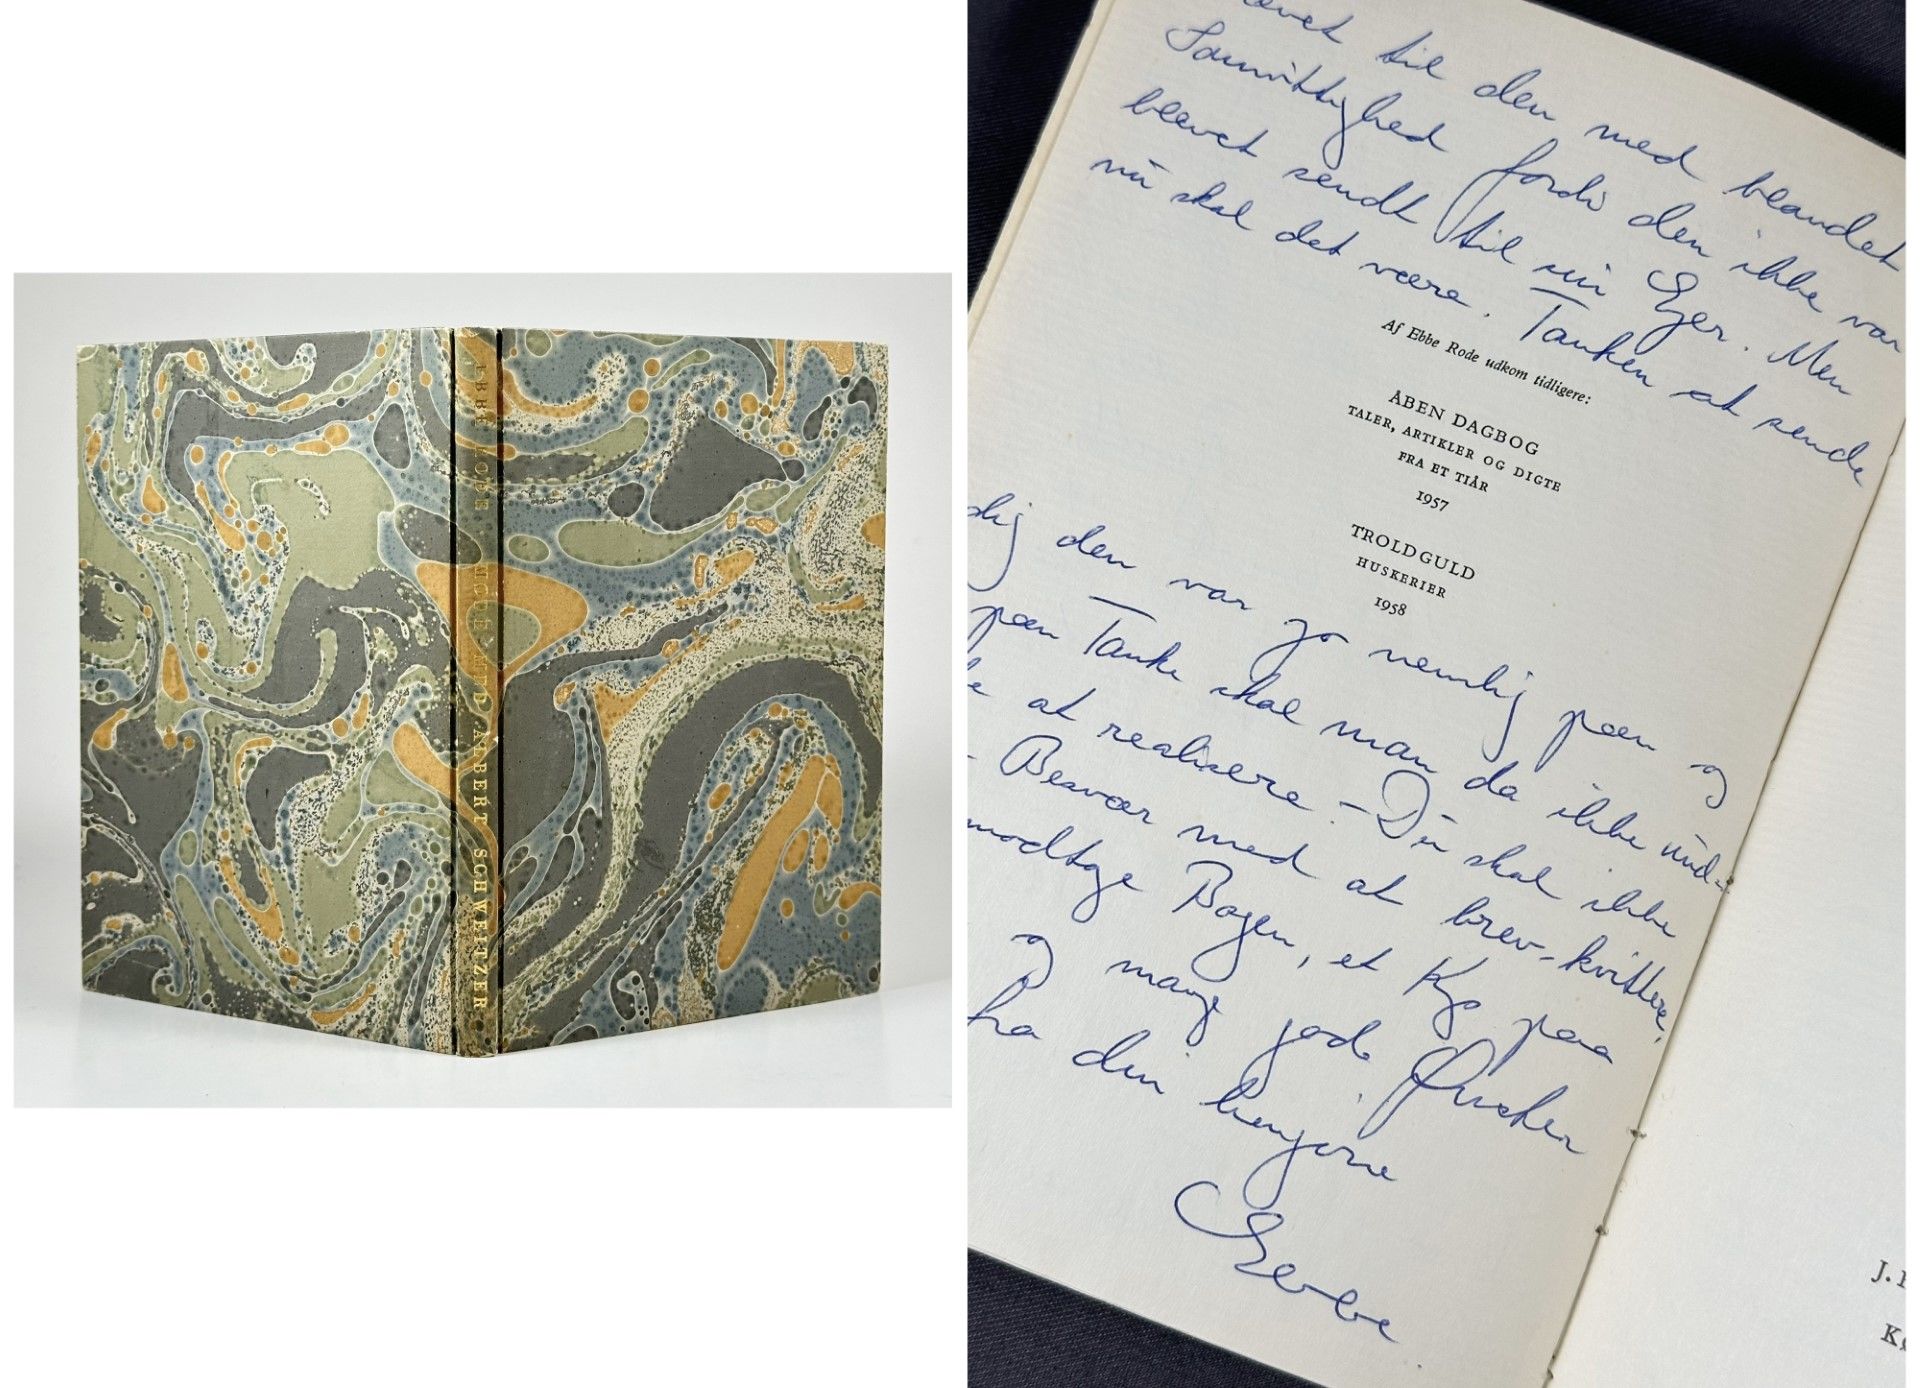 EBBE RODE UGLE MED ALBERT SCHWEITZER
til den med blandet
Samvittighed fordi den ikke var
blevet sendt til sin Ejer. Men
nu skal det være. Tanken at sende
Af Ebbe Rode udkom tidligere:
ÅBEN DAGBOG
TALER, ARTIKLER OG DIGTE
FRA ET TIÅR
1957
TROLDGULD
HUSKERIER
1958
dig den var jo nemlig pæn og
pæn Tanke skal man da ikke und-
at realisere. – Du skal ikke
Besvær med at brev-kvittere,
modtage Bogen, et Kys paa
og mange gode Ønsker
fra din hengivne
Ebbe.
J.